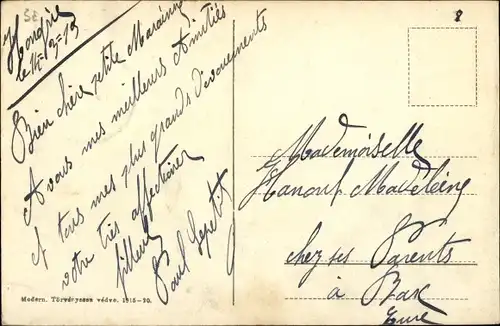 Hongrie
le 11-12-19
Bien chère petite Marainne
A vous mes meilleurs Amitiés
et tous mes plus grands dévouements
votre très affectionné
filleul
Paul Lepetit
Modern. Törvényesen védve. 1915-20.
8
Mademoiselle
Hanout Madeleine
chez ses Parents
à Bax
Eure